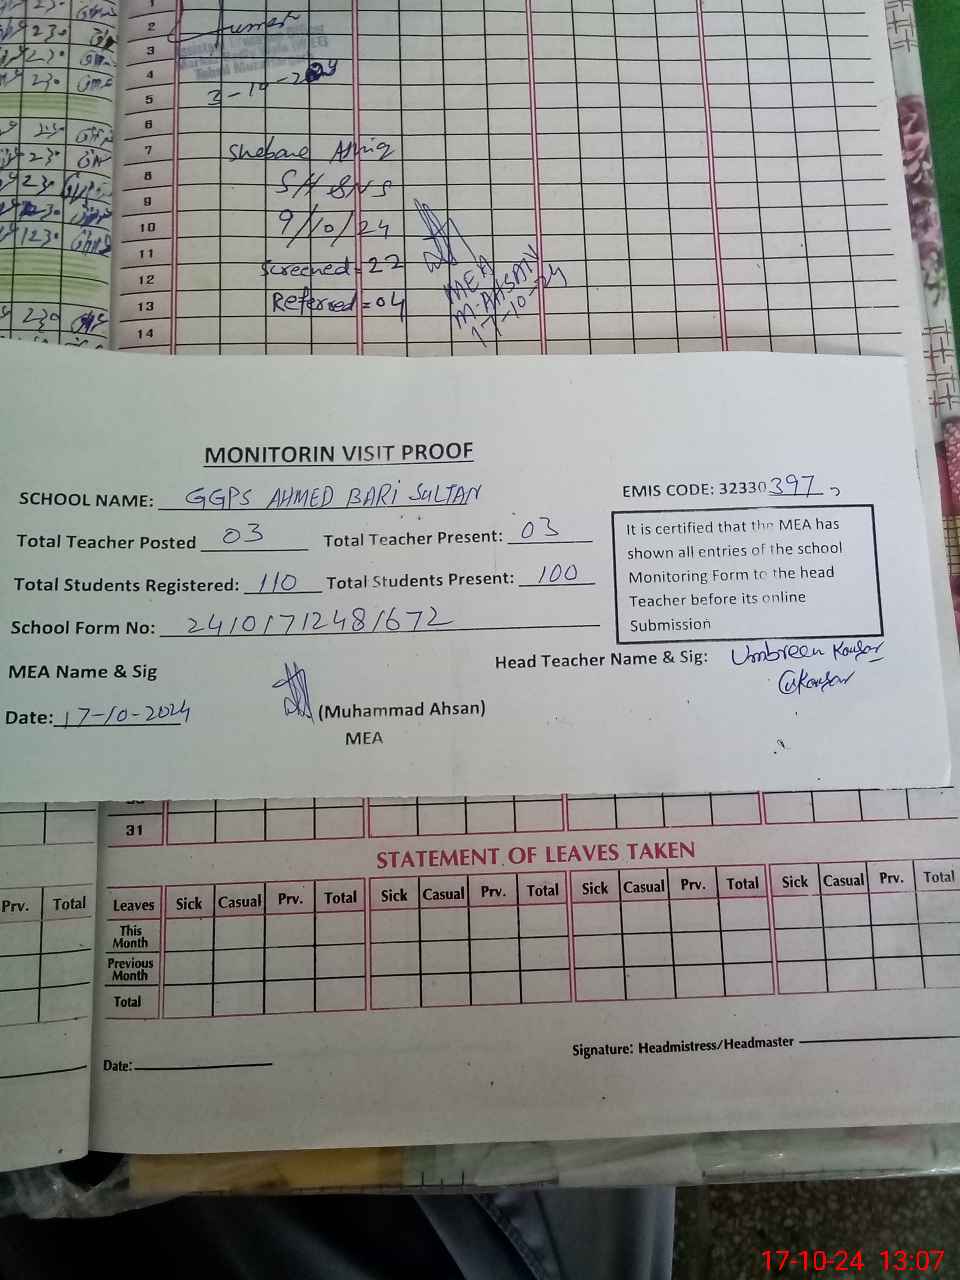 1
2
3
4
3-10-2024
5
6
7
8
9
10
11
12
13
14
Shebane Ashiq
SH & NS
9/10/24
Screened = 22
Referred = 04
MEA
M. AHSAN
17-10-24
230
230
230
230
230
230
230
1230
230
MONITORIN VISIT PROOF
SCHOOL NAME: GGPS AHMED BARI SULTAN
EMIS CODE: 32330397
Total Teacher Posted 03 Total Teacher Present: 03
Total Students Registered: 110 Total Students Present: 100
School Form No: 24101712481672
It is certified that the MEA has
shown all entries of the school
Monitoring Form to the head
Teacher before its online
Submission
MEA Name & Sig
Head Teacher Name & Sig: Umbreen Kousar
UKousar
Date: 17-10-2024
(Muhammad Ahsan)
MEA
31
STATEMENT OF LEAVES TAKEN
Prv. Total Leaves Sick Casual Prv. Total Sick Casual Prv. Total Sick Casual Prv. Total Sick Casual Prv. Total
This Month
Previous Month
Total
Date:
Signature: Headmistress/Headmaster
17-10-24 13:07